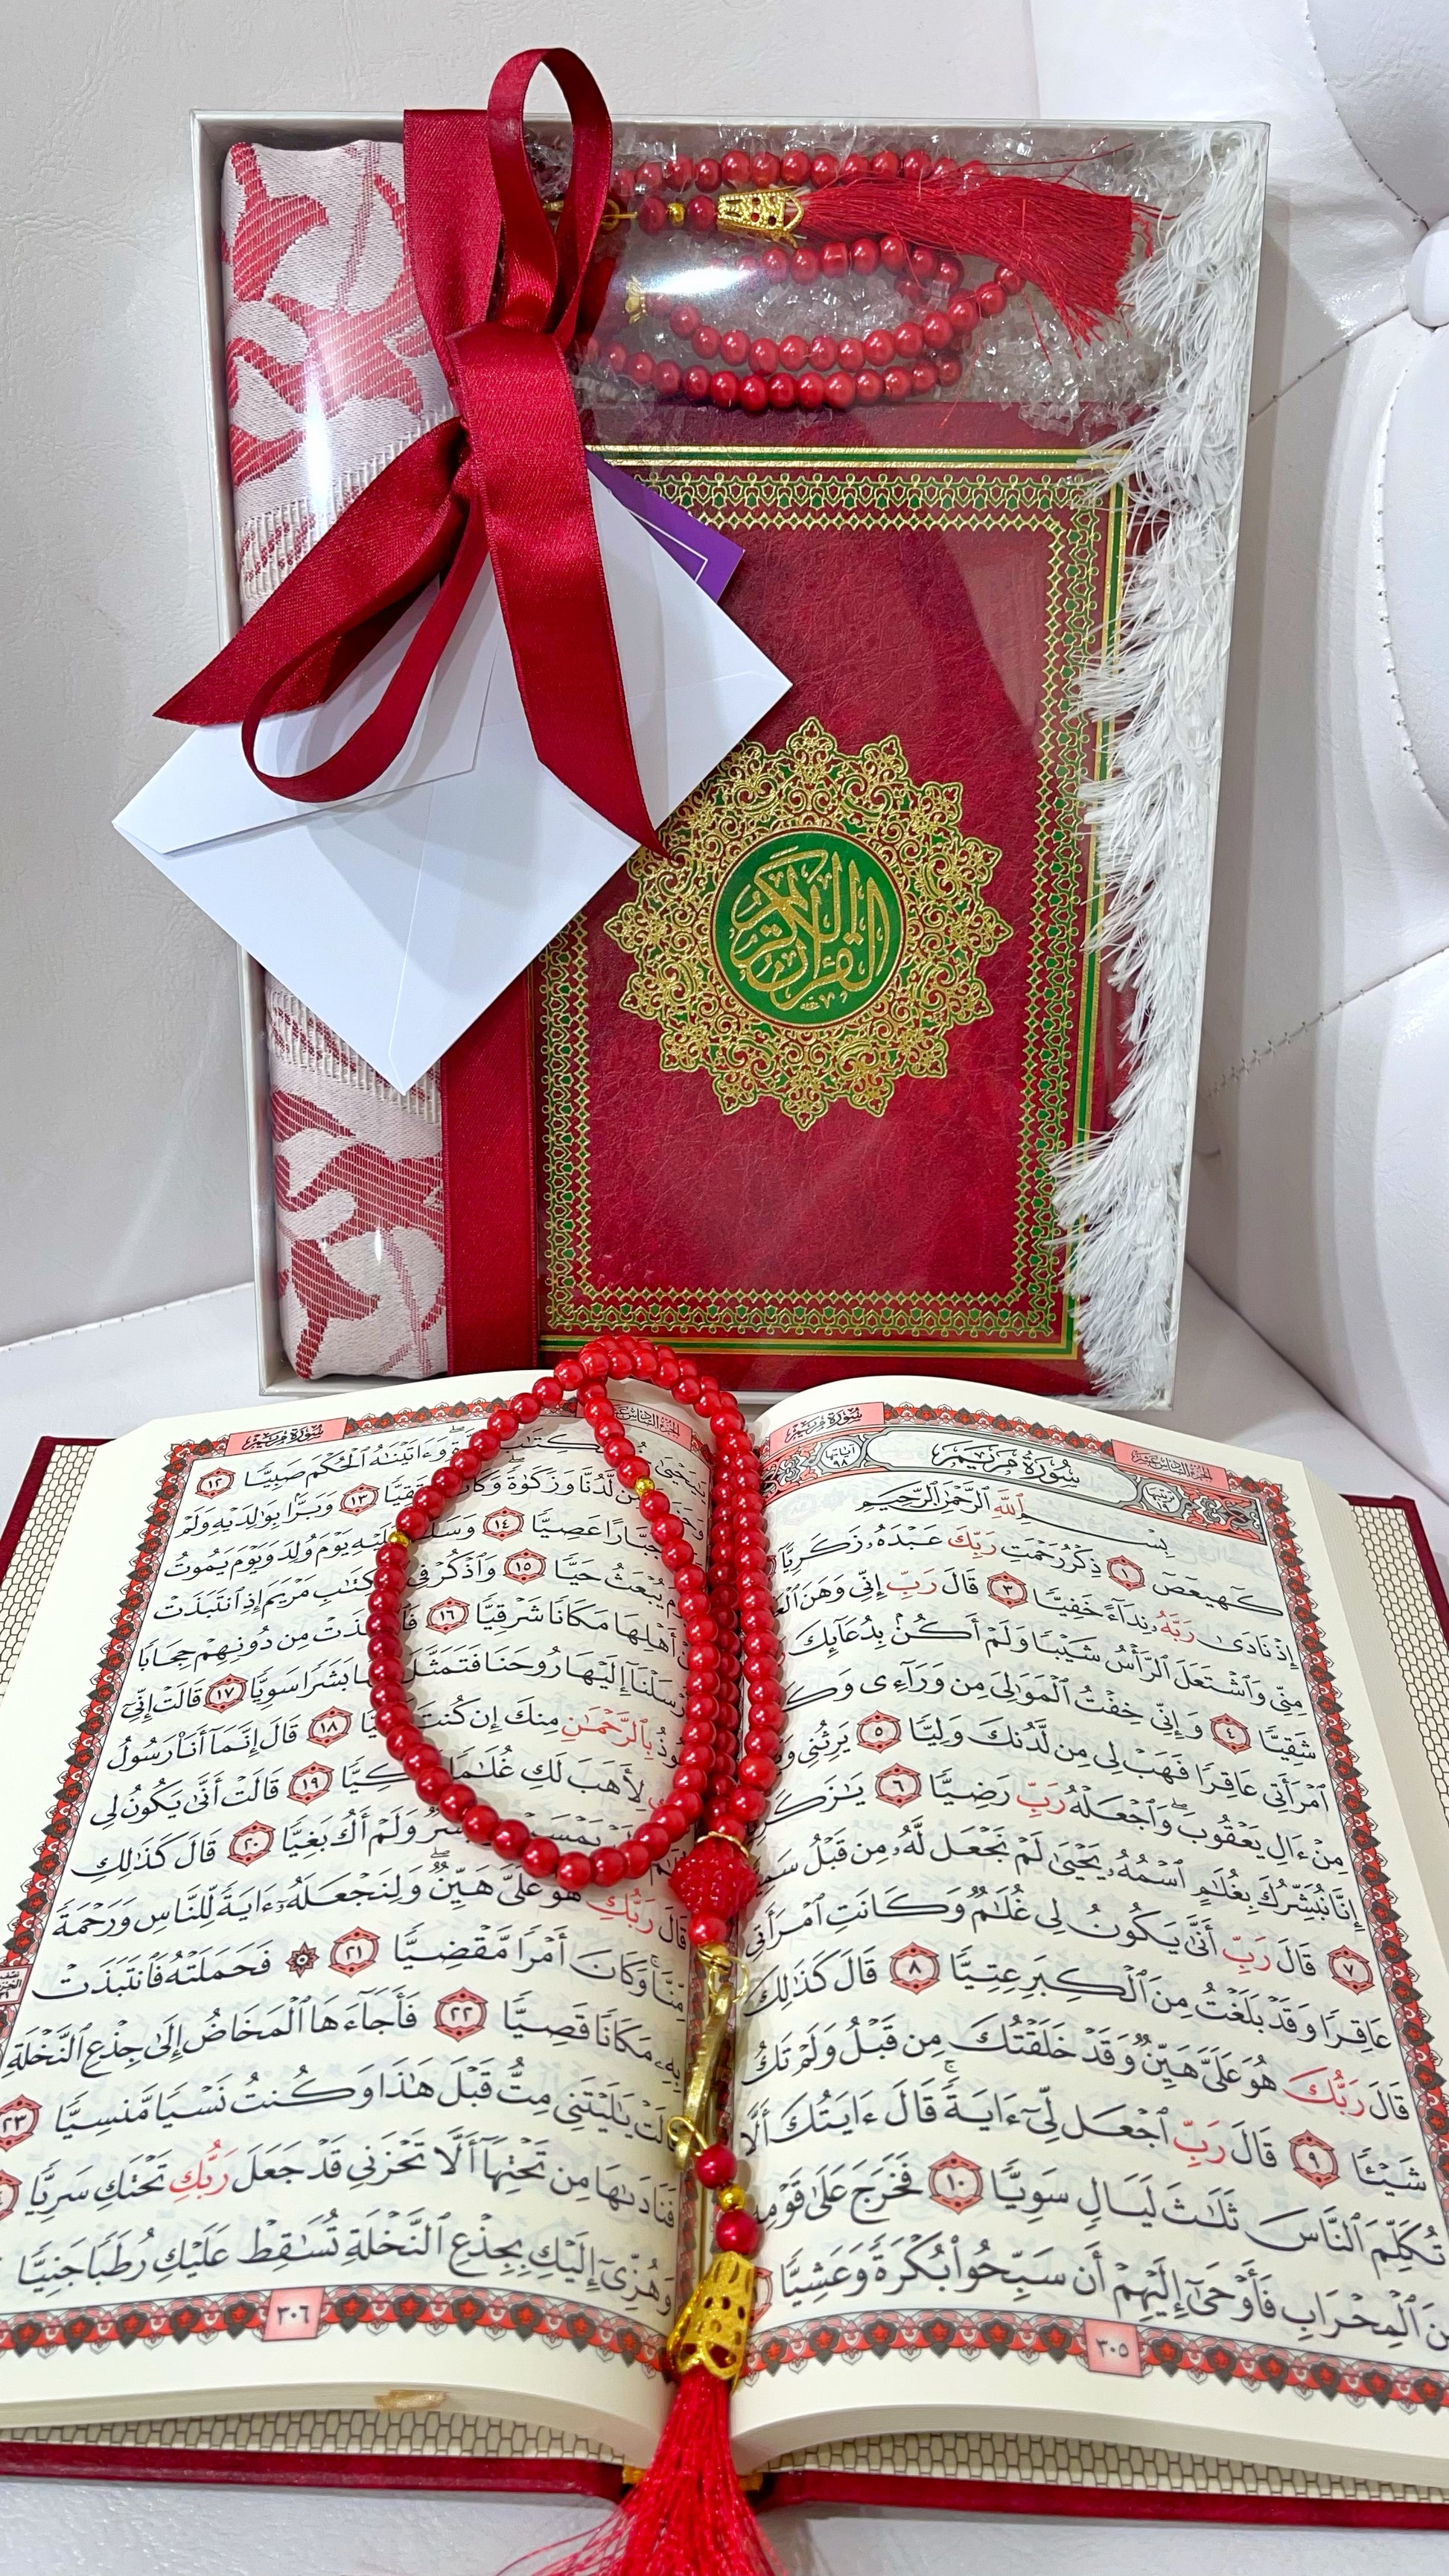 القرآن الكريم
سورة مريم
الجزء السادس عشر
سورة مريم
آياتها ٩٨
بِسْمِ ٱللَّهِ ٱلرَّحْمَٰنِ ٱلرَّحِيمِ
كٓهيعٓصٓ ١ ذِكْرُ رَحْمَتِ رَبِّكَ عَبْدَهُۥ زَكَرِيَّآ
إِذْ نَادَىٰ رَبَّهُۥ نِدَآءً خَفِيًّا ٣ قَالَ رَبِّ إِنِّى وَهَنَ
مِنِّى وَٱشْتَعَلَ ٱلرَّأْسُ شَيْبًا وَلَمْ أَكُنۢ بِدُعَآئِكَ
شَقِيًّا ٤ وَإِنِّى خِفْتُ ٱلْمَوَٰلِىَ مِن وَرَآءِى
ٱمْرَأَتِى عَاقِرًا فَهَبْ لِى مِن لَّدُنكَ وَلِيًّا ٥ يَرِثُنِى
مِنْ ءَالِ يَعْقُوبَ ۖ وَٱجْعَلْهُ رَبِّ رَضِيًّا ٦
إِنَّا نُبَشِّرُكَ بِغُلَٰمٍ ٱسْمُهُۥ يَحْيَىٰ لَمْ نَجْعَل لَّهُۥ مِن قَبْلُ
٧ قَالَ رَبِّ أَنَّىٰ يَكُونُ لِى غُلَٰمٌ وَكَانَتِ ٱمْرَأَتِى
عَاقِرًا وَقَدْ بَلَغْتُ مِنَ ٱلْكِبَرِ عِتِيًّا ٨ قَالَ كَذَٰلِكَ
قَالَ رَبُّكَ هُوَ عَلَىَّ هَيِّنٌ وَقَدْ خَلَقْتُكَ مِن قَبْلُ وَلَمْ تَكُ
شَيْـًٔا ٩ قَالَ رَبِّ ٱجْعَل لِّىٓ ءَايَةً ۚ قَالَ ءَايَتُكَ أَلَّا
تُكَلِّمَ ٱلنَّاسَ ثَلَٰثَ لَيَالٍ سَوِيًّا ١٠ فَخَرَجَ عَلَىٰ قَوْمِهِۦ
ٱلْمِحْرَابِ فَأَوْحَىٰٓ إِلَيْهِمْ أَن سَبِّحُوا۟ بُكْرَةً وَعَشِيًّا
٣٠٥
سورة مريم
وَءَاتَيْنَٰهُ ٱلْحُكْمَ صَبِيًّا ١٢
لَّدُنَّا وَزَكَوٰةً ۖ وَكَانَ تَقِيًّا ١٣ وَبَرًّۢا بِوَٰلِدَيْهِ وَلَمْ
جَبَّارًا عَصِيًّا ١٤ وَسَلَٰمٌ عَلَيْهِ يَوْمَ وُلِدَ وَيَوْمَ يَمُوتُ
يُبْعَثُ حَيًّا ١٥ وَٱذْكُرْ فِى ٱلْكِتَٰبِ مَرْيَمَ إِذِ ٱنتَبَذَتْ
أَهْلِهَا مَكَانًا شَرْقِيًّا ١٦ مِن دُونِهِمْ حِجَابًا
إِلَيْهَا رُوحَنَا فَتَمَثَّلَ بَشَرًا سَوِيًّا ١٧ قَالَتْ إِنِّىٓ
بِٱلرَّحْمَٰنِ مِنكَ إِن كُنتَ ١٨ قَالَ إِنَّمَآ أَنَا۠ رَسُولُ
لِأَهَبَ لَكِ غُلَٰمًا زَكِيًّا ١٩ قَالَتْ أَنَّىٰ يَكُونُ لِى
وَلَمْ أَكُ بَغِيًّا ٢٠ قَالَ كَذَٰلِكِ
قَالَ رَبُّكِ هُوَ عَلَىَّ هَيِّنٌ ۖ وَلِنَجْعَلَهُۥٓ ءَايَةً لِّلنَّاسِ وَرَحْمَةً
مِّنَّا ۚ وَكَانَ أَمْرًا مَّقْضِيًّا ٢١ ۞ فَحَمَلَتْهُ فَٱنتَبَذَتْ
بِهِۦ مَكَانًا قَصِيًّا ٢٢ فَأَجَآءَهَا ٱلْمَخَاضُ إِلَىٰ جِذْعِ ٱلنَّخْلَةِ
قَالَتْ يَٰلَيْتَنِى مِتُّ قَبْلَ هَٰذَا وَكُنتُ نَسْيًا مَّنسِيًّا ٢٣
فَنَادَىٰهَا مِن تَحْتِهَآ أَلَّا تَحْزَنِى قَدْ جَعَلَ رَبُّكِ تَحْتَكِ سَرِيًّا
وَهُزِّىٓ إِلَيْكِ بِجِذْعِ ٱلنَّخْلَةِ تُسَٰقِطْ عَلَيْكِ رُطَبًا جَنِيًّا
٣٠٦